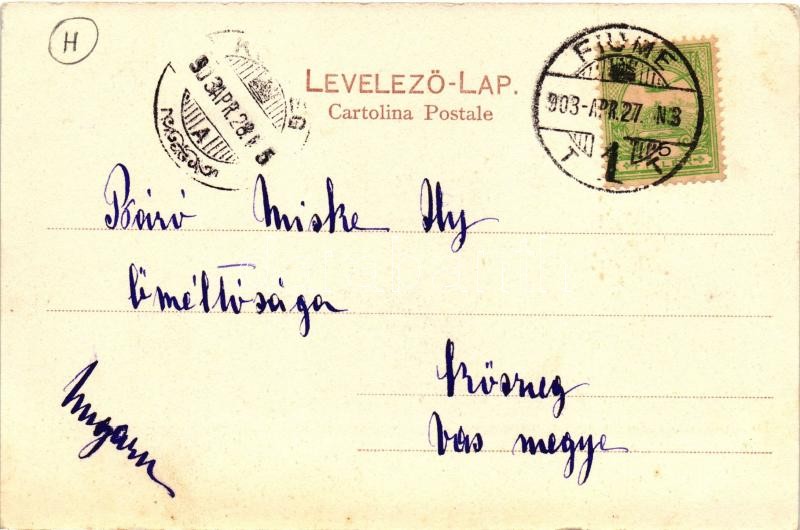 H
LEVELEZŐ-LAP.
Cartolina Postale
903 APR. 28.
A
FIUME
903-APR.27. N3
5
Báró Miske Ily
Őméltósága
Kőszeg
Vas megye
Hungarn